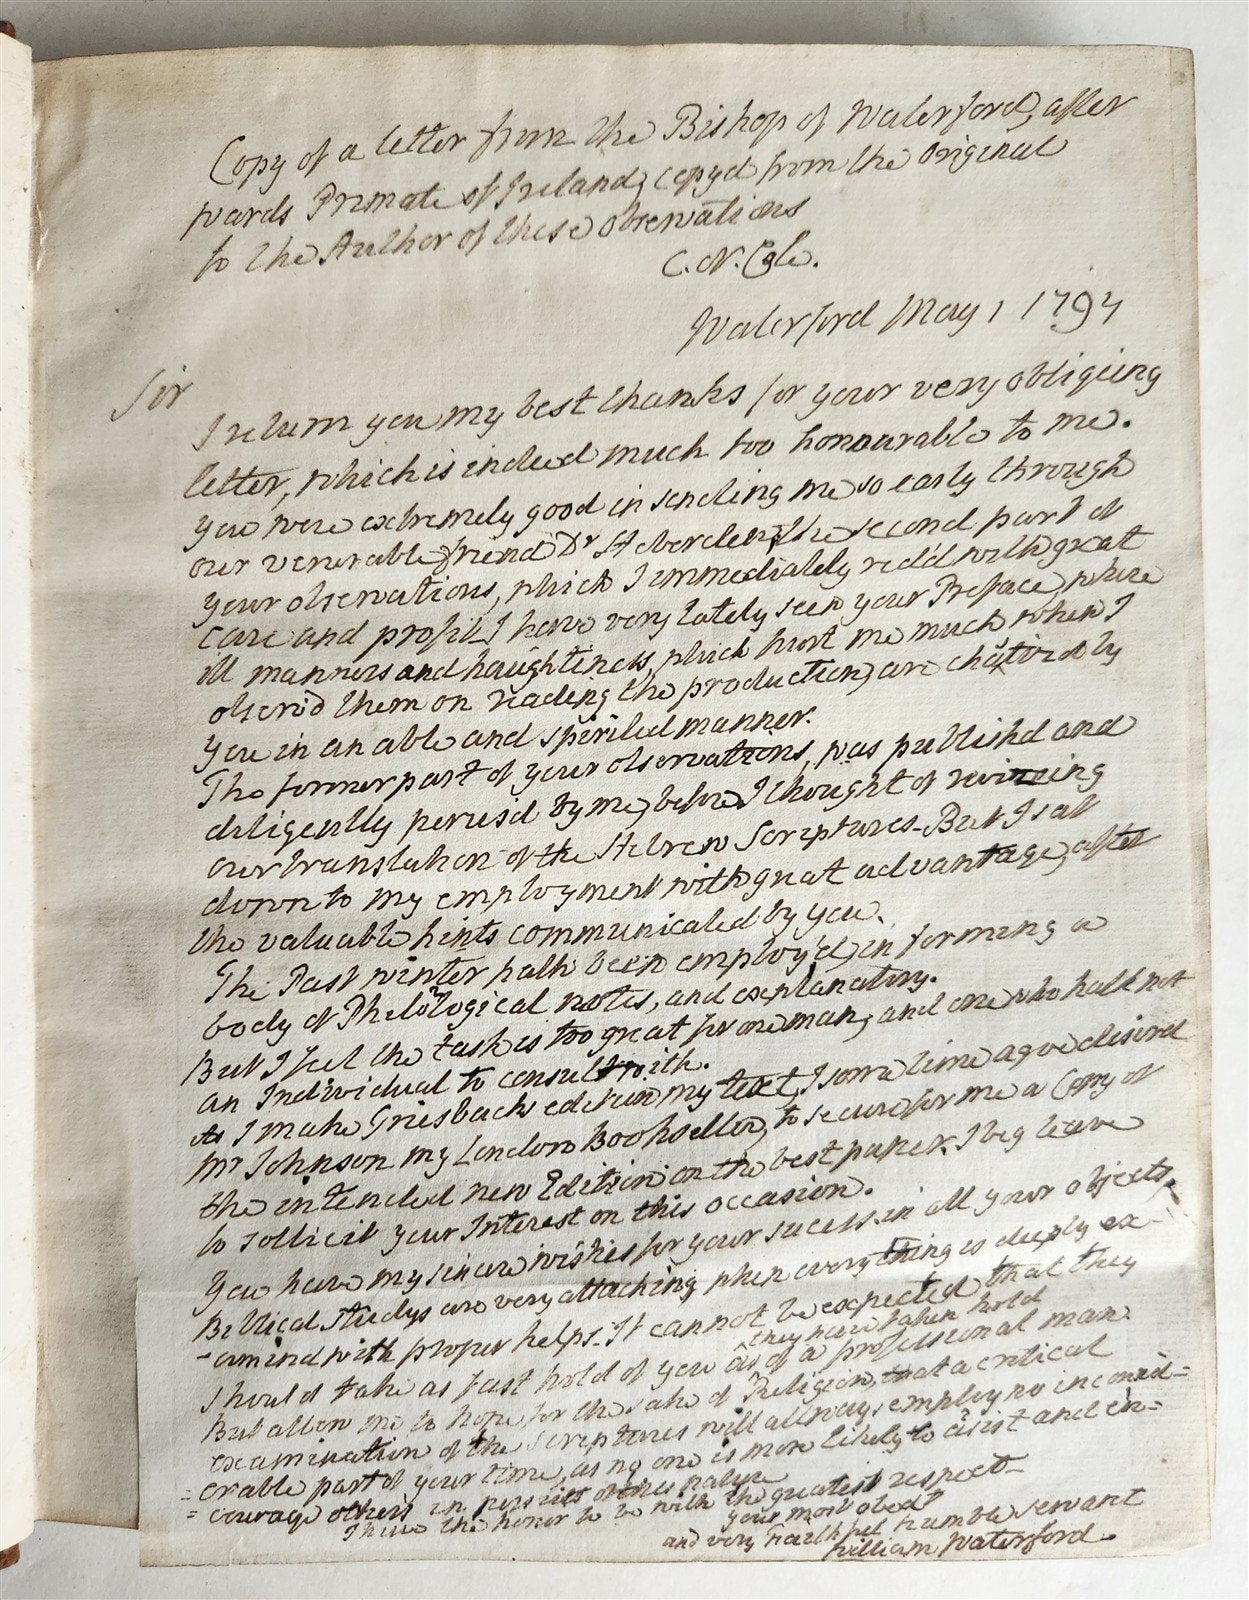 Copy of a letter from the Bishop of Waterford, after
wards Primate of Ireland, copyd from the Original
to the Author of these observations
C. N. Cole.
Waterford May 1 1794
Sir
I return you my best thanks for your very obligeing
letter, which is indeed much too honourable to me.
you were extremely good in sending me so early through
our venerable friend Dr Heberden, the second part of
your observations, which I immediately redd with great
care and profit. I have very lately seen your Preface, where
ill manners and haughtiness, which hurt me much when I
observ'd them on reading the production, are chastized by
you in an able and spirited manner.
The former part of your observations, was publishd and
diligently perus'd by me, before I thought of revizeing
our translation of the Hebrew Scriptures. But I sat
down to my employment with great advantage, after
the valuable hints communicated by you.
The Past winter hath been employ'd in forming a
body of Philological notes, and explanatory.
But I feel the task is too great for one man, and one who hath not
an Individual to consult with.
As I make Griesbachs edition my text, I some time agoe desired
Mr Johnson my London Bookseller, to secure for me a Copy of
the intended new Edition on the best paper. I beg leave
to sollicit your Interest on this occasion.
You have my sincere wishes for your sucess in all your objects.
Biblical Studys are very attaching when every thing is deeply ex-
-amind with proper helps. It cannot be expected that they
they have taken hold
should take as fast hold of you as of a professional man.
But allow me to hope for the sake of Religion, that a critical
examination of the scriptures will allways employ no inconsid=
=erable part of your time, as no one is more likely to assist and en=
=courage others in persuits of this nature
I have the honor to be with the greatest respect
your most obedt
and very Faithful humble servant
William Waterford.